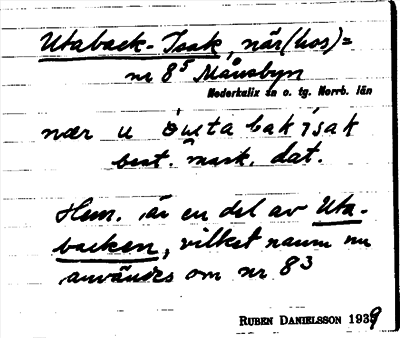 Utaback-Isak, när (hos) =
nr 8⁵ Månsbyn
Nederkalix sn o. tg. Norrb. län
nær u ùuta bak ìsak
best. mask. dat.
Hem. är en del av Uta-
backen, vilket namn nu
användes om nr 8³
RUBEN DANIELSSON 1939